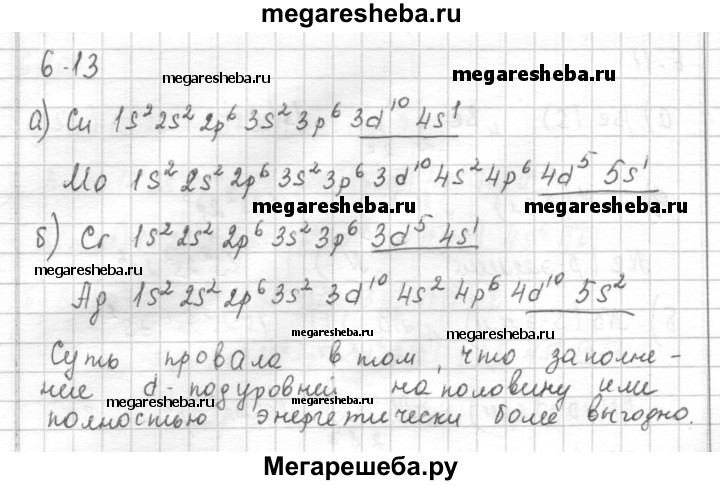 megaresheba.ru
6-13
megaresheba.ru
megaresheba.ru
а) Cu 1s² 2s² 2p⁶ 3s² 3p⁶ 3d¹⁰ 4s¹
Mo 1s² 2s² 2p⁶ 3s² 3p⁶ 3d¹⁰ 4s² 4p⁶ 4d⁵ 5s¹
megaresheba.ru
megaresheba.ru
б) Cr 1s² 2s² 2p⁶ 3s² 3p⁶ 3d⁵ 4s¹
megaresheba.ru
Ag 1s² 2s² 2p⁶ 3s² 3d¹⁰ 4s² 4p⁶ 4d¹⁰ 5s²
megaresheba.ru
megaresheba.ru
Суть провала в том, что заполне-
ние d-подуровней на половину или
megaresheba.ru
megaresheba.ru
полностью энергетически более выгодно.
Мегарешеба.ру